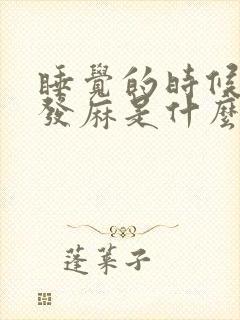 睡覺的時候
發麻是什麼
蓬萊子